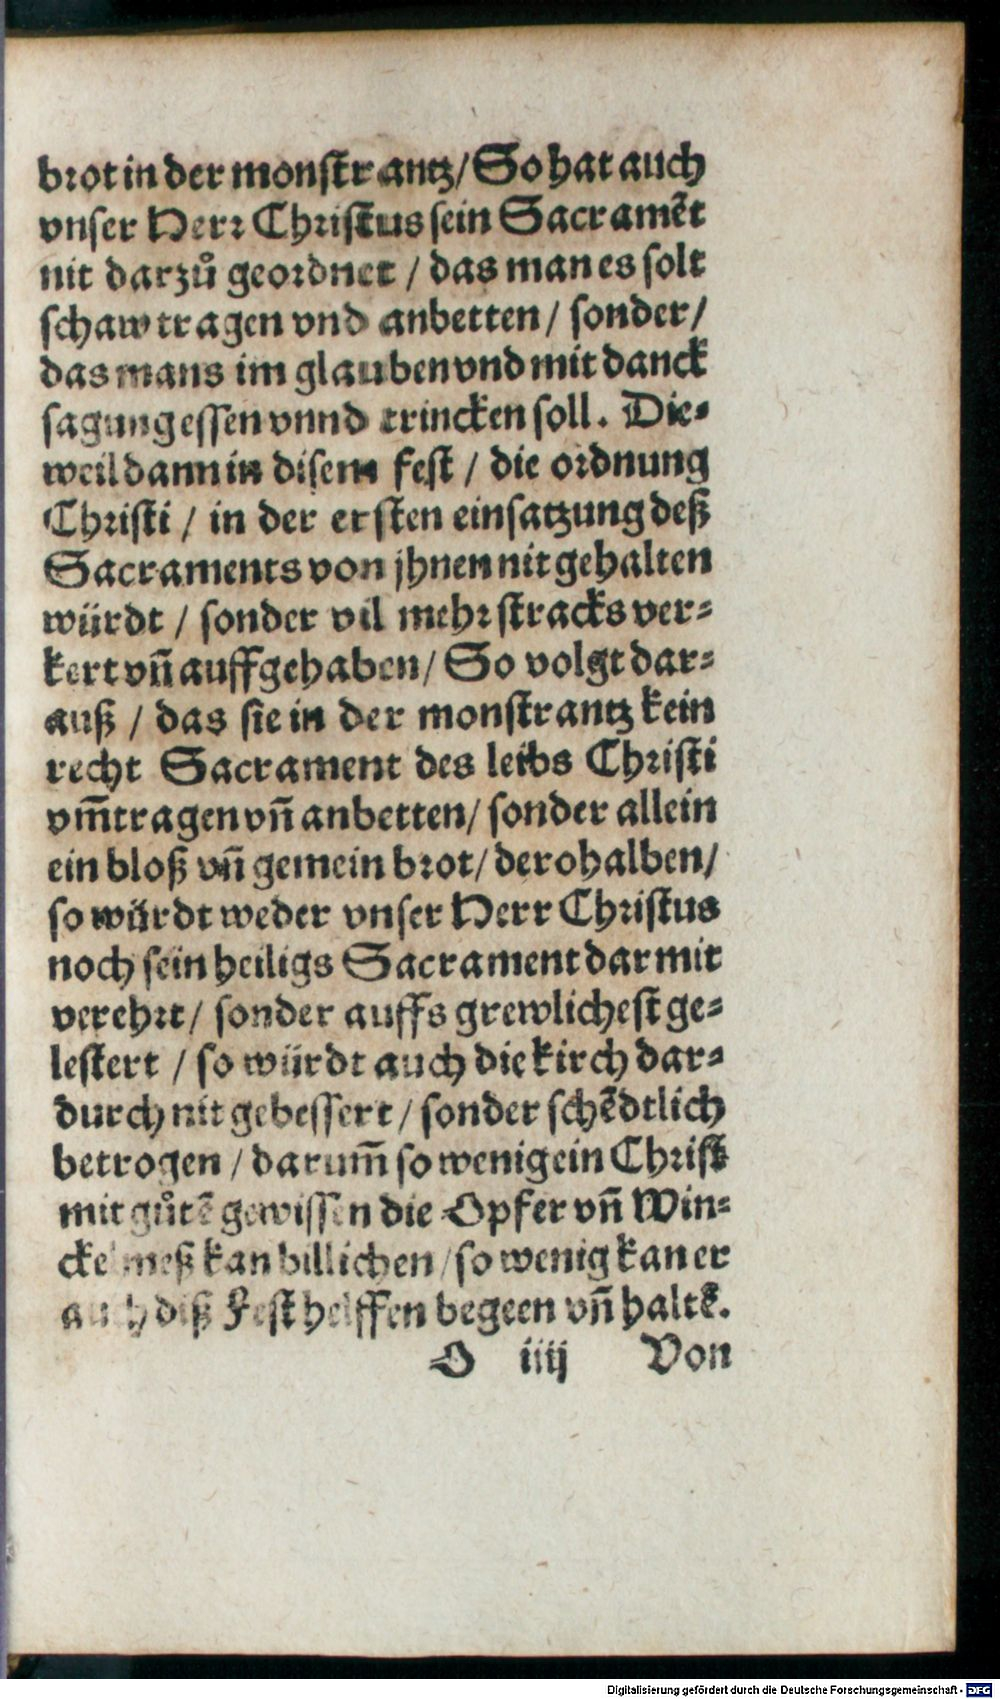 brot in der monstrantz/ So hat auch
vnser Herr Christus sein Sacramēt
nit darzů geordnet / das man es solt
schawtragen vnd anbetten/ sonder/
das mans im glauben vnd mit danck
sagung essen vnnd trincken soll. Die-
weil dann in disem fest / die ordnung
Christi / in der ersten einsatzung deß
Sacraments von jhnen nit gehalten
würdt / sonder vil mehr stracks ver-
kert vñ auffgehaben/ So volgt dar-
auß / das sie in der monstrantz kein
recht Sacrament des leibs Christi
vm̃tragen vñ anbetten/ sonder allein
ein bloß vñ gemein brot/ derohalben/
so würdt weder vnser Herr Christus
noch sein heiligs Sacrament darmit
verehrt/ sonder auffs grewlichest ge-
lestert / so würdt auch die kirch dar-
durch nit gebessert/ sonder schēdtlich
betrogen / darum̃ so wenig ein Christ
mit gůtē gewissen die Opfer vñ Win-
ckelmeß kan billichen/ so wenig kan er
auch diß Fest helffen begeen vñ haltē.
O iiij Von
Digitalisierung gefördert durch die Deutsche Forschungsgemeinschaft - DFG